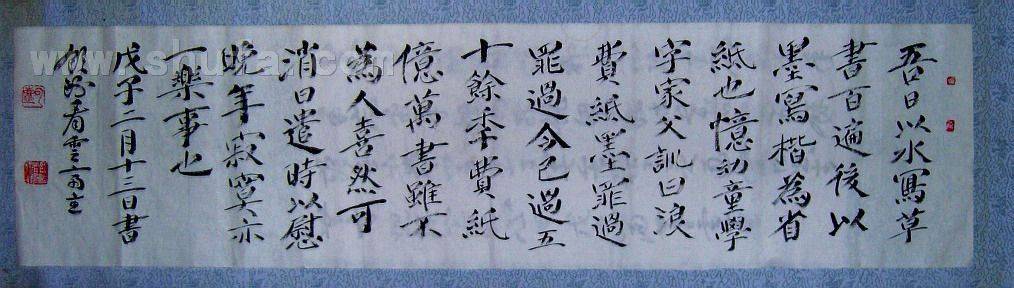 吾日以水寫草
書百遍後以
墨寫楷為省
紙也憶幼童學
字家父訓曰浪
費紙墨罪過
罪過今已過五
十餘季費紙
億萬書雖不
為人喜然可
消日遣時以慰
晚年寂寞亦
一樂事也
戊子二月十三日書
看雲